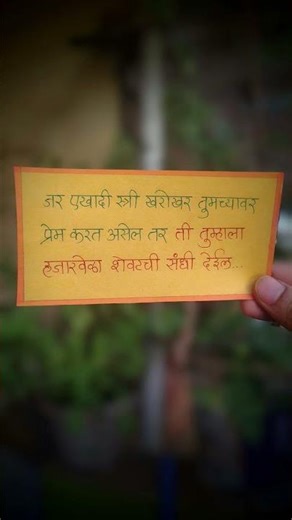 जर एखादी स्त्री खरोखर तुमच्यावर
प्रेम करत असेल तर ती तुम्हाला
हजारवेळा शेवटची संधी देईल...